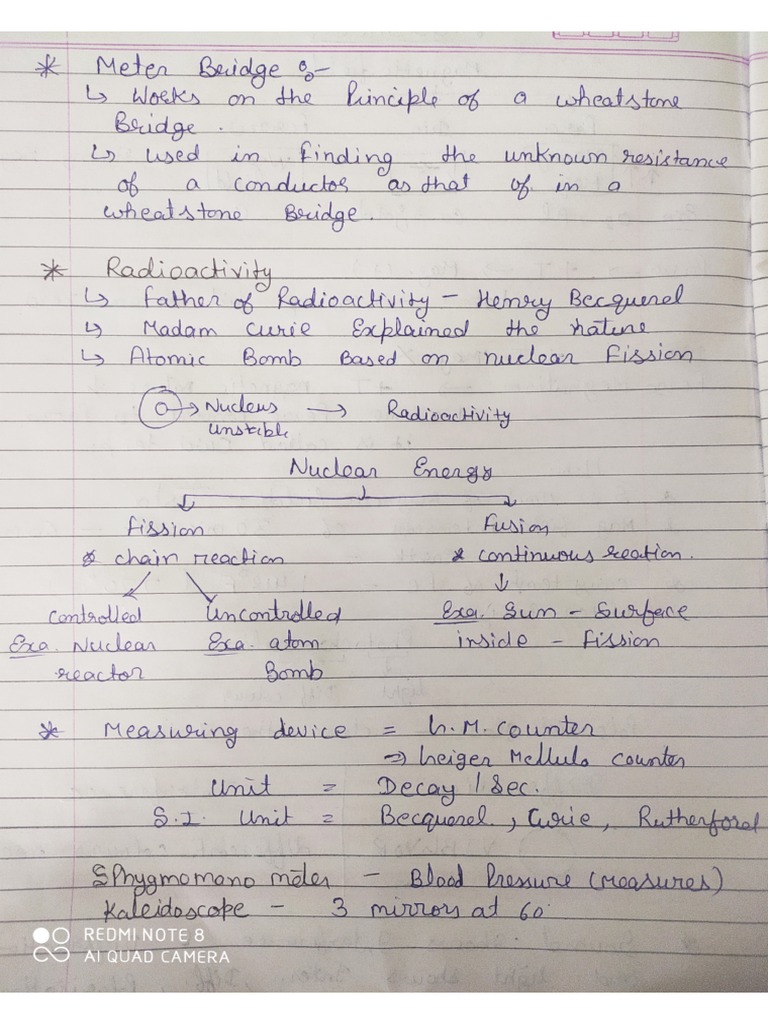 * Meter Bridge :-
↳ Works on the Principle of a wheatstone
Bridge.
↳ used in finding the unknown resistance
of a conductor as that of in a
wheatstone Bridge.
* Radioactivity
↳ Father of Radioactivity - Henry Becquerel
↳ Madam Curie Explained the nature
↳ Atomic Bomb Based on nuclear Fission
→ Nucleus → Radioactivity
unstable
Nuclear Energy
Fission Fusion
* chain reaction * continuous reation.
controlled Uncontrolled Exa. Sun - Surface
Exa. Nuclear Exa. atom inside - Fission
reactor Bomb
* Measuring device = G.M. counter
⇒ Geiger Mellulo counter
Unit = Decay / Sec.
S.I. Unit = Becquerel, Curie, Rutherford
SPhygmomano meter - Blood Pressure (measures)
Kaleidoscope - 3 mirrors at 60°
REDMI NOTE 8
AI QUAD CAMERA